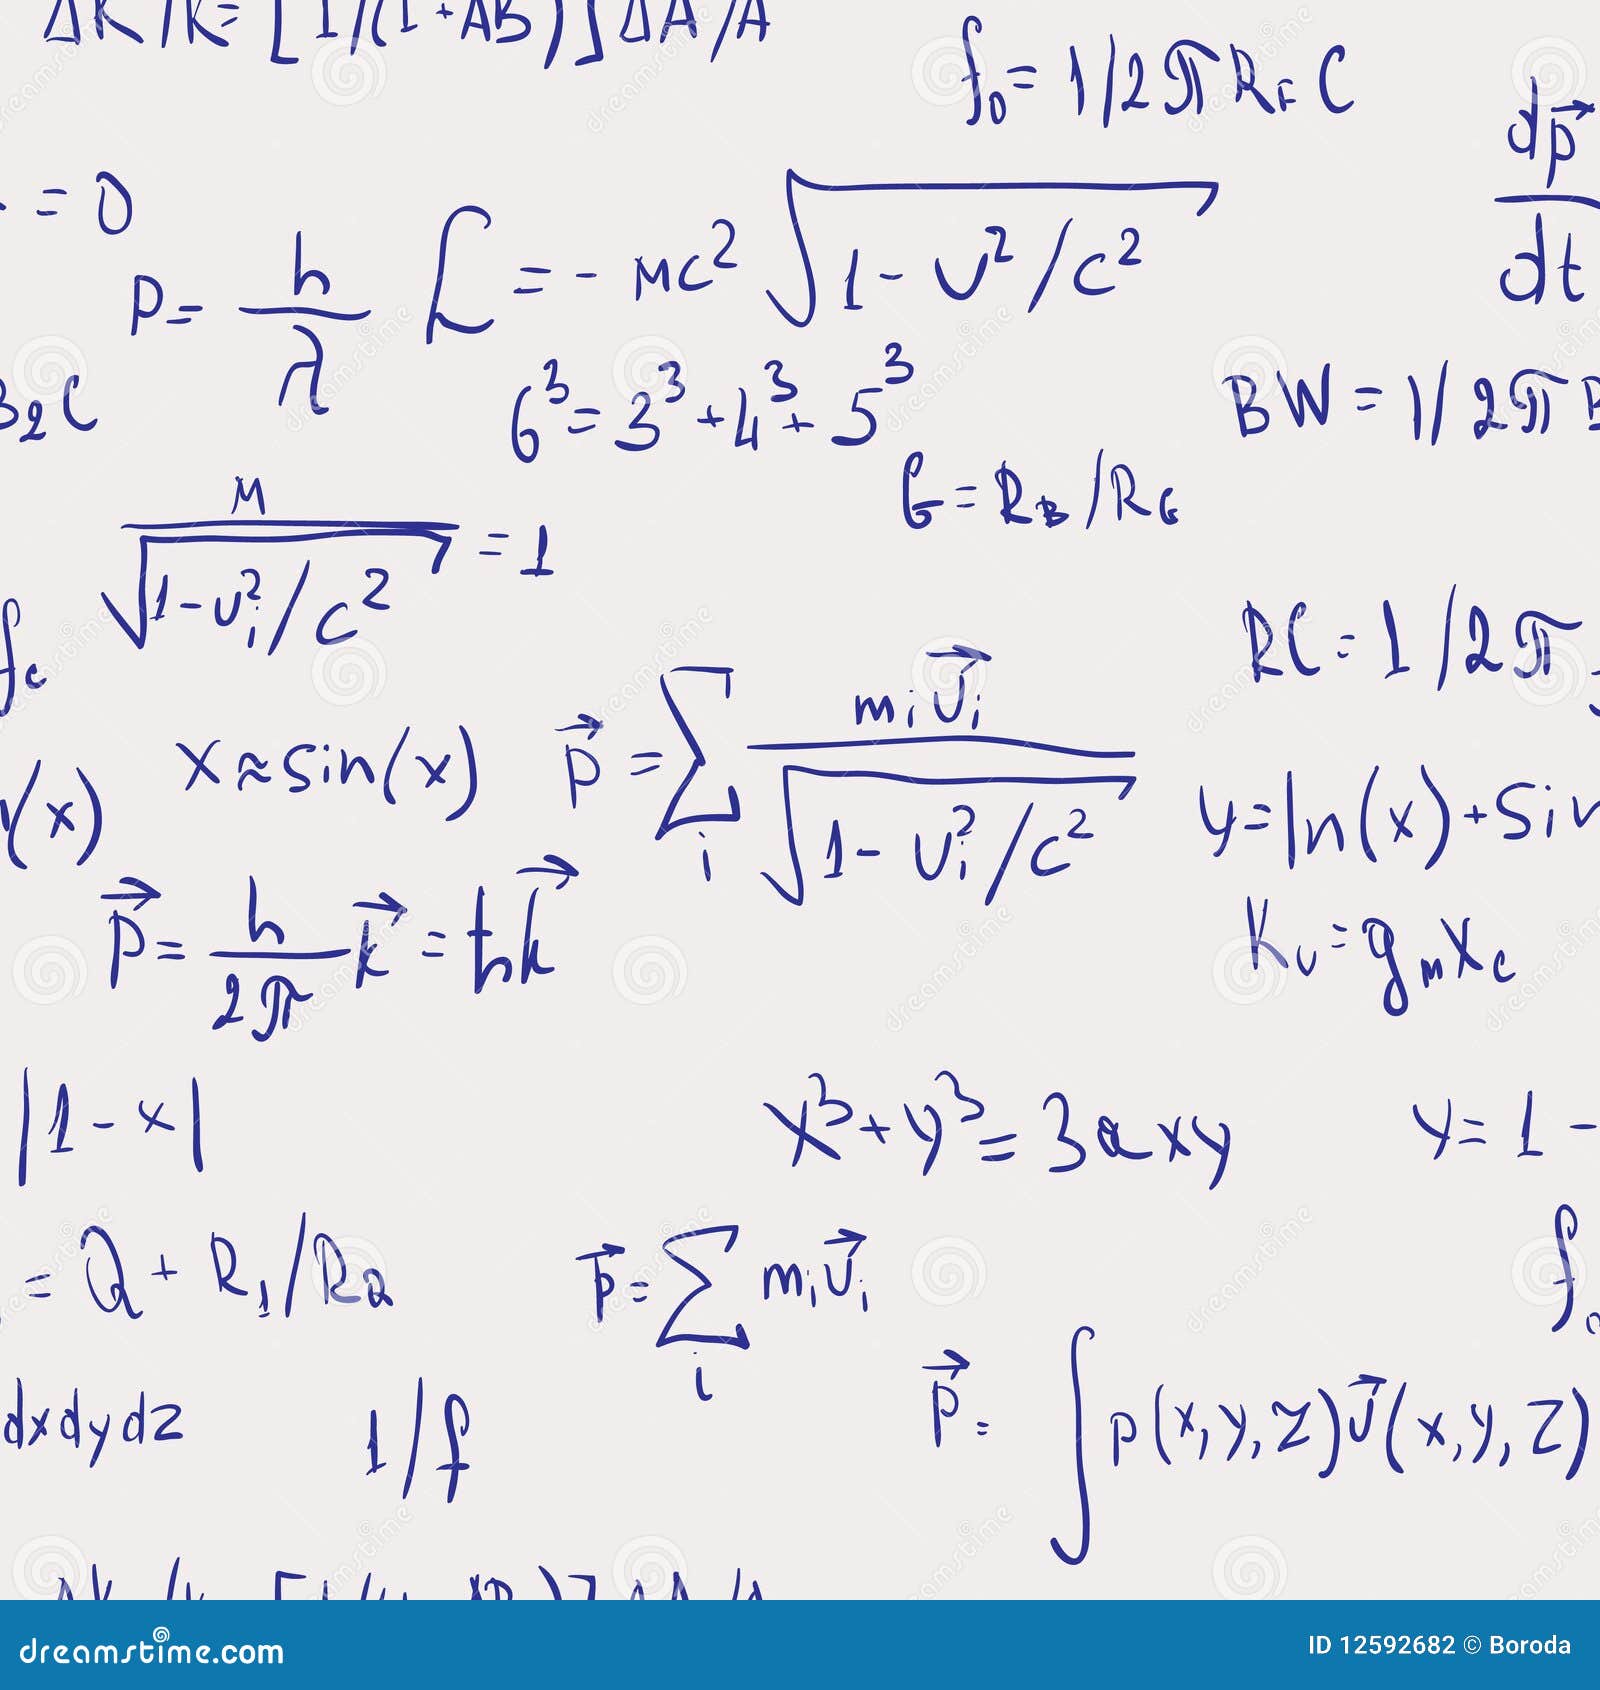 ΔK/K=[1/(1+AB)]ΔA/A
f₀=1/2πR_F C
dp⃗/dt
=0
p=h/λ
L=-mc²√(1-v²/c²)
B₂C
6³=3³+4³+5³
BW=1/2πB
G=R_B/R_G
m/√(1-v_i²/c²)=1
f_c
RC=1/2π
x≈sin(x)
p⃗=Σ_i m_i v⃗_i/√(1-v_i²/c²)
(x)
y=ln(x)+sin
p⃗=h/2π k⃗=ħk⃗
K_v=g_m x_c
|1-x|
x³+y³=3axy
y=1-
=Q+R₁/R_Q
p⃗=Σ_i m_i v⃗_i
p⃗=∫p(x,y,z)v⃗(x,y,z)
dxdydz
1/f
dreamstime.com
ID 12592682 © Boroda